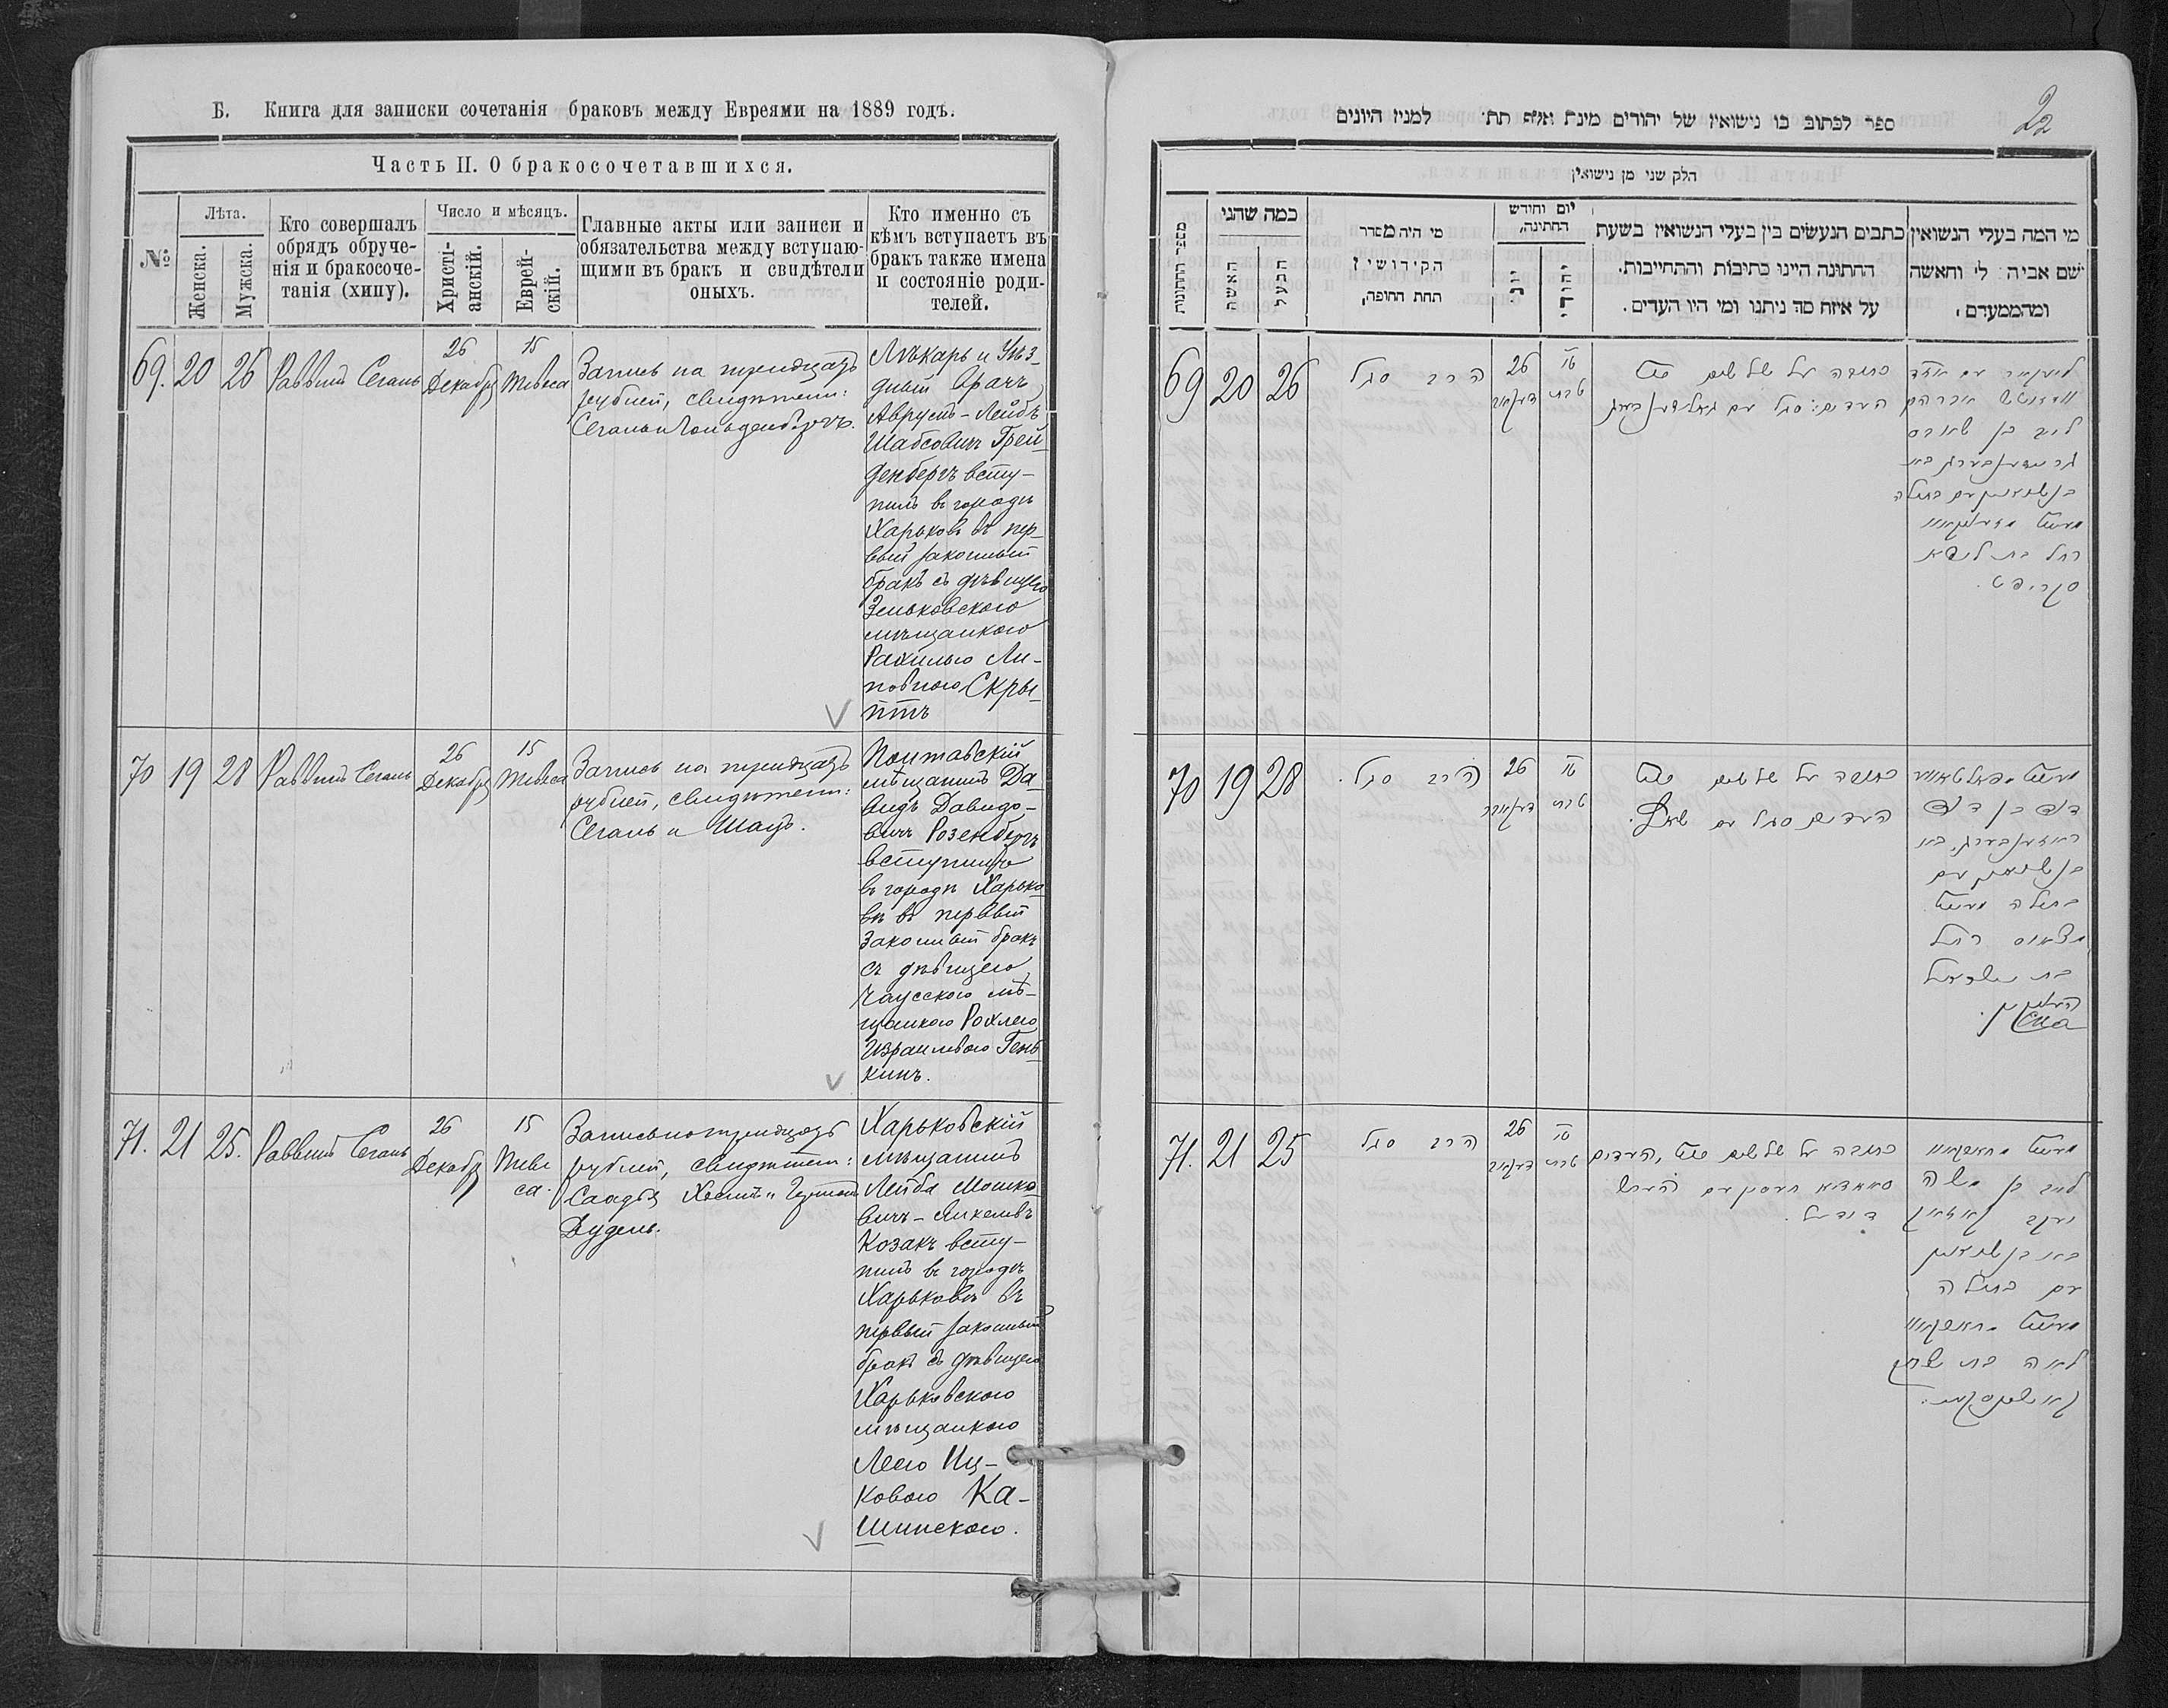 Б. Книга для записки сочетанія браковъ между Евреями на 1889 годъ.
Часть II. О бракосочетавшихся.
№
Лѣта.
Женска.
Мужска.
Кто совершалъ
обрядъ обруче-
нія и бракосоче-
танія (хипу).
Число и мѣсяцъ.
Христі-
анскій.
Еврей-
скій.
Главные акты или записи и
обязательства между вступаю-
щими въ бракъ и свидѣтели
оныхъ.
Кто именно съ
кѣмъ вступаетъ въ
бракъ также имена
и состояніе роди-
телей.
69. 20 26 Раввинъ Сегаль
26
Декабря
15
Тевеса
Запись на тридцать
рублей, свидѣтели:
Сегаль и Гольденбергъ.
Лѣкарь и Уѣз-
дный врачъ
Аврумъ-Лейбъ
Шабсовичъ Грей-
денбергъ всту-
пилъ въ городѣ
Харьковѣ въ пер-
вый законный
бракъ съ дѣвицею
Зеньковскою
мѣщанкою
Рахилью Ли-
повною Скры-
птъ
70 19 28 Раввинъ Сегаль
26
Декабря
15
Тевеса
Запись на тридцать
рублей, свидѣтели:
Сегаль и Шацъ.
Полтавскій
мѣщанинъ Да-
видъ Давидо-
вичъ Розенбергъ
вступилъ
въ городѣ Харько-
вѣ въ первый
законный бракъ
съ дѣвицею
Чаусскою мѣ-
щанкою Рохлею
Израилевою Гень-
кинъ.
71. 21 25. Раввинъ Сегаль
26
Декабря
15
Теве
са.
Запись на тридцать
рублей, свидѣтели:
Саадья
Дудель.
Харьковскій
мѣщанинъ
Лейба Мошко-
вичъ-Янкелевъ
Козакъ всту-
пилъ въ городѣ
Харьковѣ въ
первый законный
бракъ съ дѣвицею
Харьковскою
мѣщанкою
Леею Иц-
ковою Ка-
шинскою.
22
ספר לכתוב בו נישואין של יהודים מינת אלף תת׳ למנין היונים
חלק שני מן נישואין
מספר החתונות
כמה שהני
האשה
הבעל
מי היה מסדר
הקידושין
תחת החופה,
יום וחידש
החתונה,
יוני
יהודי
כתבים הנעשים בין בעלי הנשואין בשעת
החתונה היינו כתיבות והתחייבות.
על איזה סך ניתנו ומי היו העדים.
מי המה בעלי הנשואין
שם אביה לי וחאשה
ומהממעדם,
69 20 26
הרב סגל
26
טו
טבת
כתובה על שלשים
העדים: סגל עם גאלדענבערג
לייב בן שאבס
רחל בת ליפא
סקריפט.
70 19 28
הרב סגל.
26
טו
טבת
כתובה על שלשים
העדים סגל עם שץ.
דוד בן דוד
ראזענבערג, בא
רחל
בת ישראל
71. 21 25
הרב סגל
26
טו
טבת
כתובה על שלשים, העדים
דודל.
לייב בן משה
יעקב קאזאק
עם בתולה
לאה בת